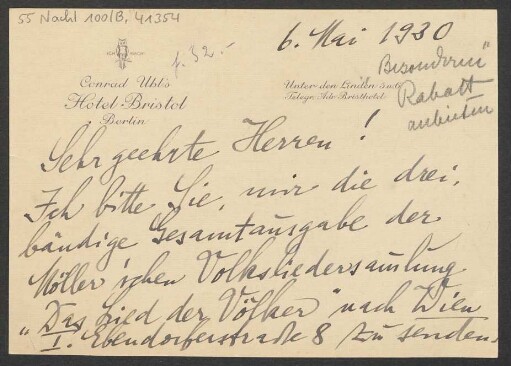 55 Nachl 100/B, 41354
6. Mai 1930
f. 32.-
Conrad Uhl's
Hôtel Bristol
Berlin
Unter den Linden 5 u 6
Telegr. Adr. Bristhotel
Besonderen
Rabatt
anbieten
Sehr geehrte Herren!
Ich bitte Sie, mir die drei-
bändige Gesamtausgabe der
Möller'schen Volksliedersammlung
„Das Lied der Völker" nach Wien
I. Ebendorferstraße 8 zu senden.